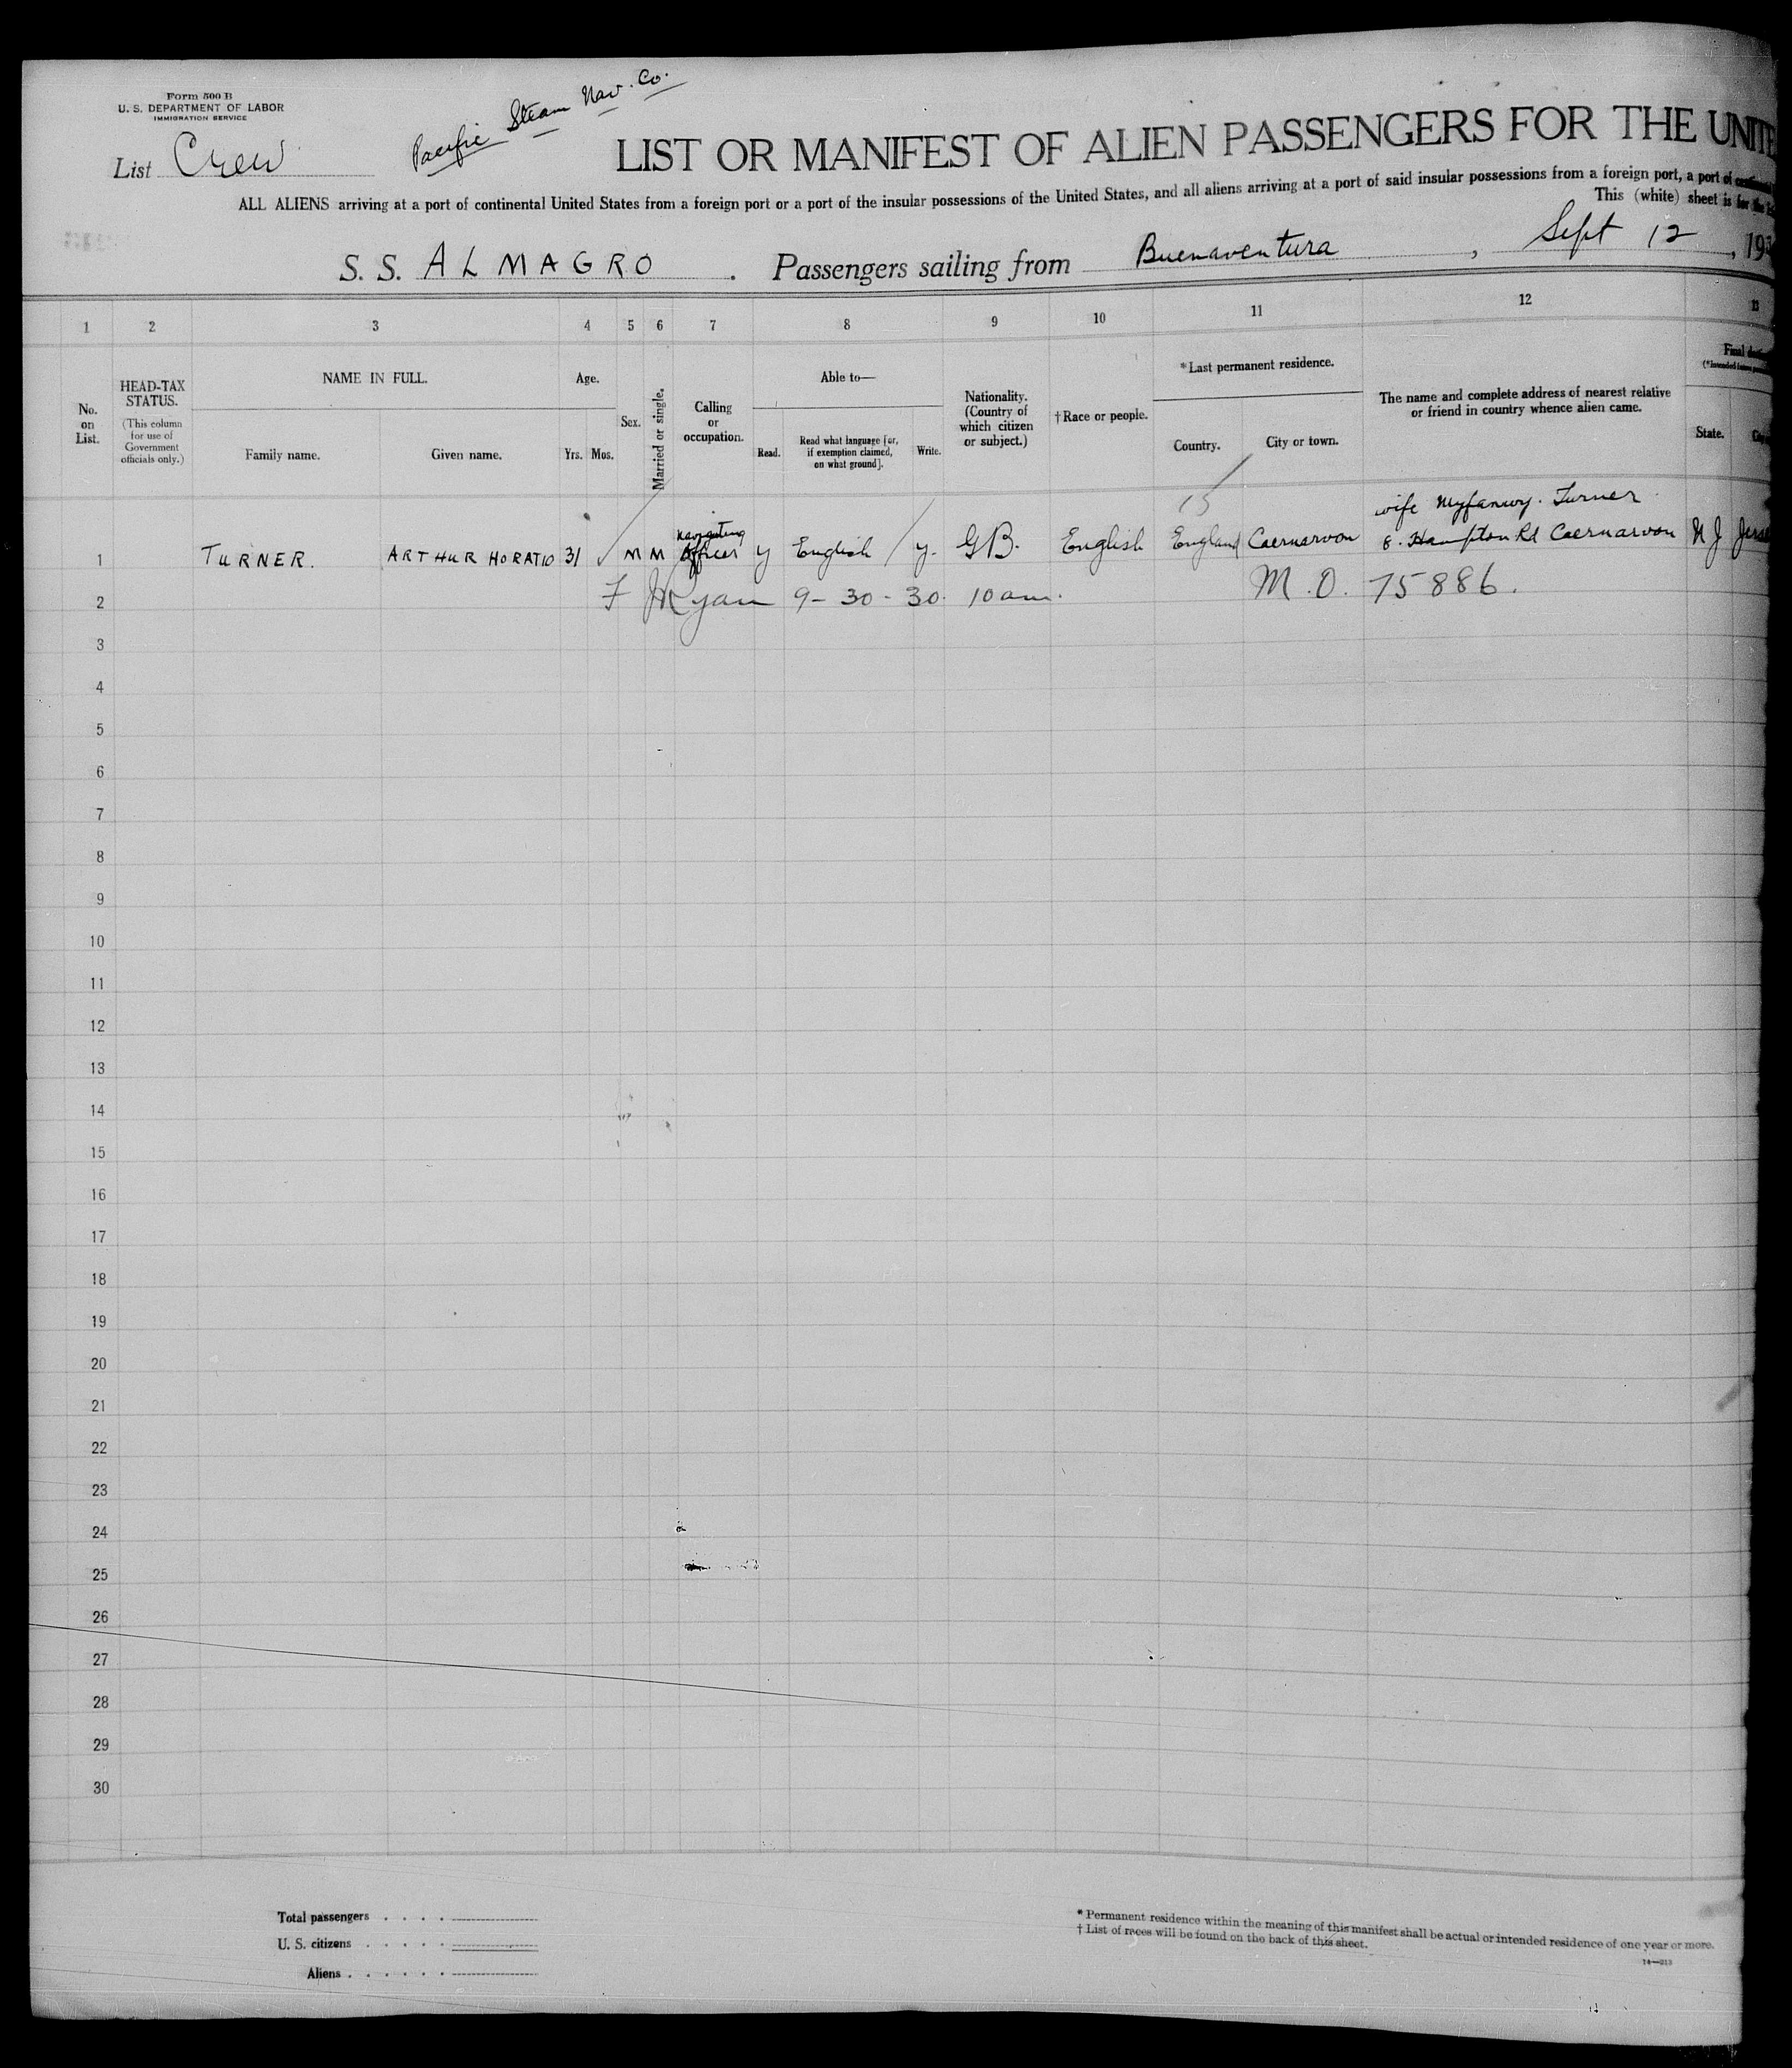 Form 500 B
U. S. DEPARTMENT OF LABOR
IMMIGRATION SERVICE
List Crew
Pacific Steam Nav. Co.
LIST OR MANIFEST OF ALIEN PASSENGERS FOR THE UNITE
ALL ALIENS arriving at a port of continental United States from a foreign port or a port of the insular possessions of the United States, and all aliens arriving at a port of said insular possessions from a foreign port, a port of
This (white) sheet is for the
S. S. ALMAGRO . Passengers sailing from Buenaventura , Sept 12 , 193
1 2 3 4 5 6 7 8 9 10 11 12 13
No. on List.
HEAD-TAX STATUS.
(This column for use of Government officials only.)
NAME IN FULL.
Family name. Given name.
Age.
Yrs. Mos.
Sex.
Married or single.
Calling or occupation.
Able to—
Read.
Read what language [or, if exemption claimed, on what ground].
Write.
Nationality. (Country of which citizen or subject.)
† Race or people.
*Last permanent residence.
Country. City or town.
The name and complete address of nearest relative or friend in country whence alien came.
Final
State.
15
wife Myfanwy. Turner
1 TURNER. ARTHUR HORATIO 31 M M Navigating Officer y English y. GB. English England Caernarvon 8. Hampton Rd Caernarvon N J
2 F JRyan 9-30-30. 10 am. M.O. 75886.
3
4
5
6
7
8
9
10
11
12
13
14
15
16
17
18
19
20
21
22
23
24
25
26
27
28
29
30
Total passengers . . . .
U. S. citizens . . . . .
Aliens . . . . . .
* Permanent residence within the meaning of this manifest shall be actual or intended residence of one year or more.
† List of races will be found on the back of this sheet.